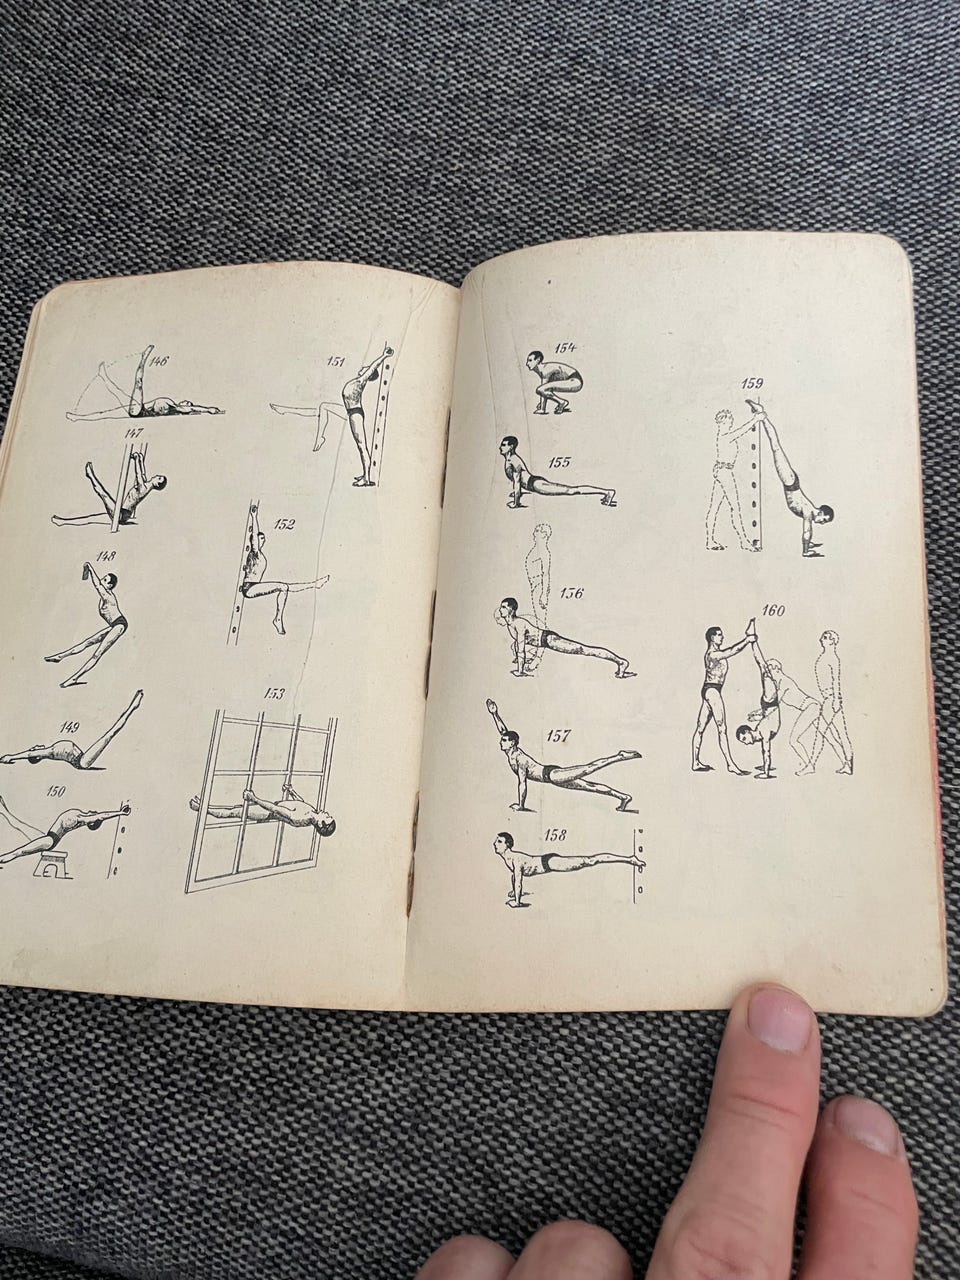 146
147
148
149
150
151
152
153
154
155
156
157
158
159
160